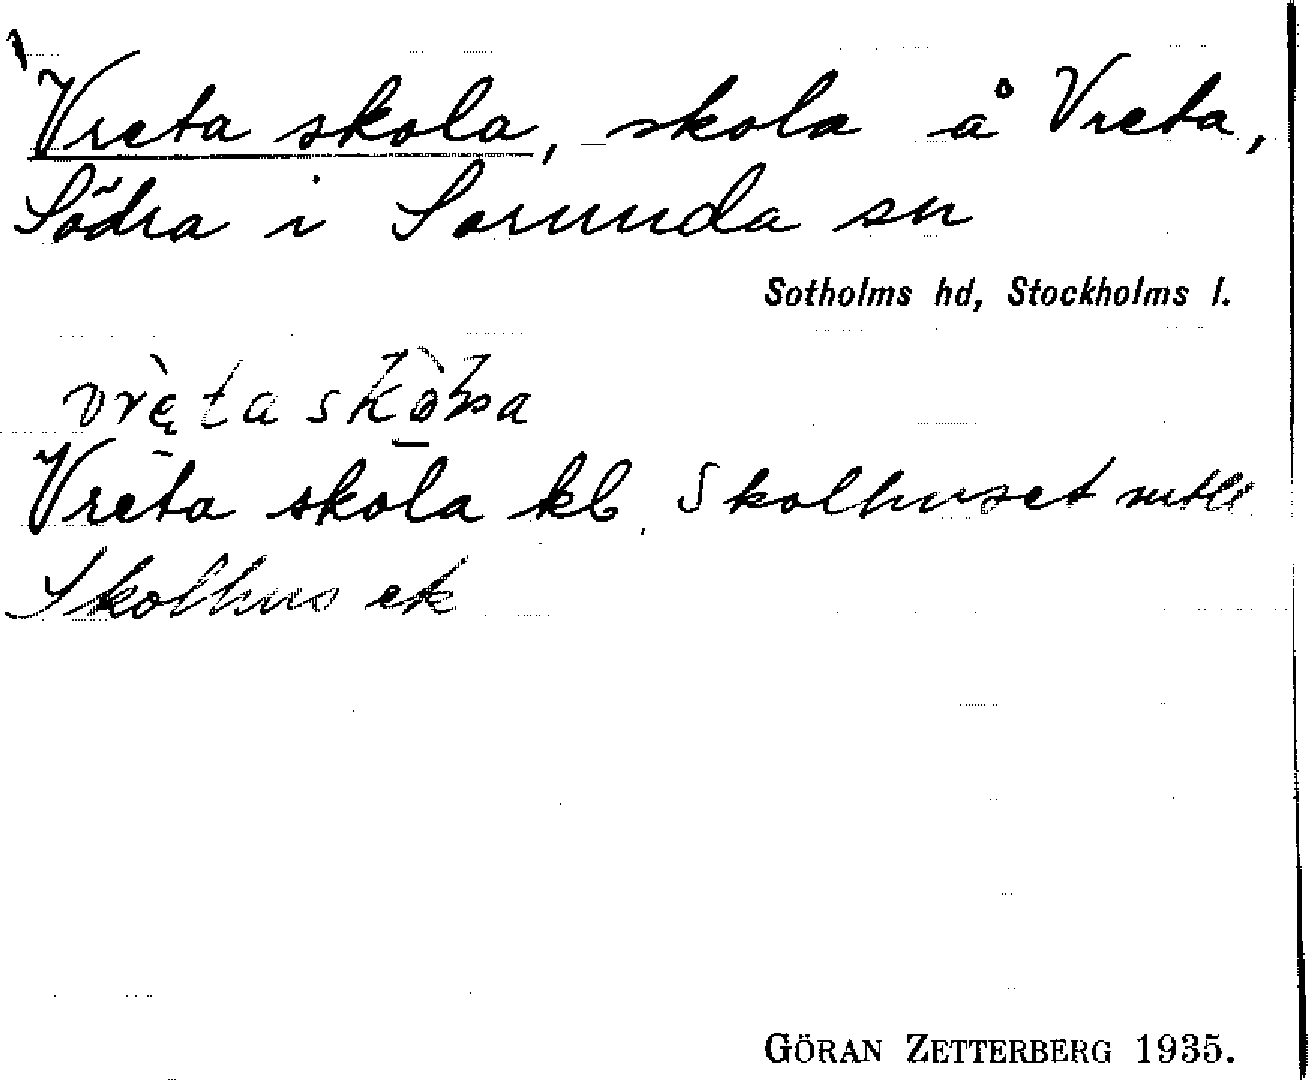 Vreta skola, skola å Vreta,
Södra i Sorunda sn
Sotholms hd, Stockholms l.
Vreta skola kb. Skolhuset
Skolhus ek
GÖRAN ZETTERBERG 1935.